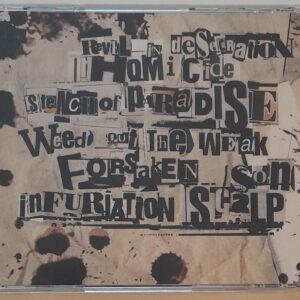 REVEL in deSecRATiON
HOMiCiDe
SteNcH of PaRADISE
Weed out The WeAk
FORSAKEN Song
inFURiATiON SCALP